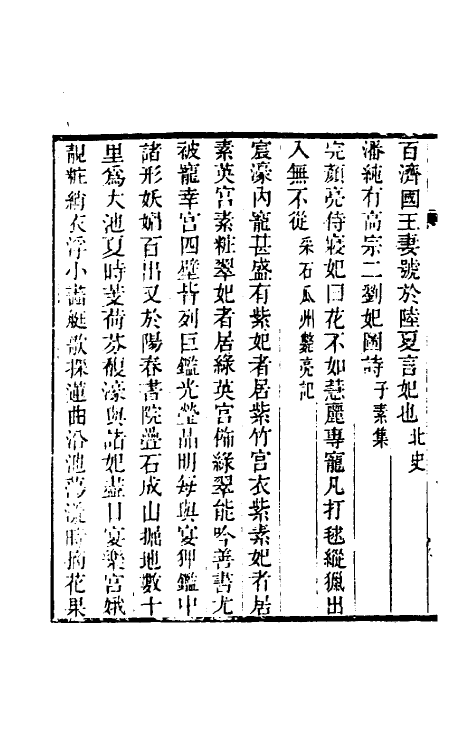 百濟國王妻號於陸夏言妃也北史
潘純有高宗二劉妃圖詩子素集
完顏亮侍寢妃曰花不如慧麗專寵凡打毬縱獵出
入無不從采石瓜州斃亮記
宸濠內寵甚盛有紫妃者居紫竹宮衣紫素妃者居
素英宮素粧翠妃者居綠英宮飾綠翠能吟善書尤
被寵幸宮四壁皆列巨鑑光瑩晶明每與宴狎鑑中
諸形妖媚百出又於陽春書院疊石成山掘地數十
里爲大池夏時菱荷芬馥濠與諸妃盡日宴樂宮娥
靚粧綃衣浮小畫艇歌採蓮曲沿池蕩漾時摘花果